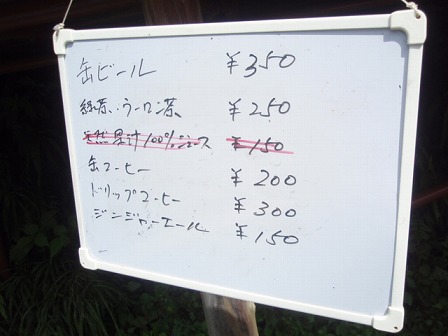 缶ビール ¥350
緑茶、ウーロン茶 ¥250
天然果汁100%ジュース ¥150
缶コーヒー ¥200
ドリップコーヒー ¥300
ジンジャーエール ¥150